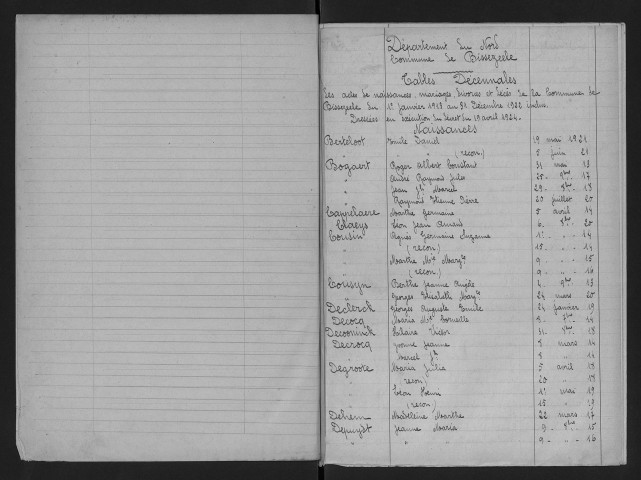 Département du Nord
Commune de Bissezeele
Tables Décennales
des actes de naissances, mariages, divorces et décès de la Commune de
Bissezeele du 1er janvier 1913 au 31 Décembre 1922 inclus.
Dressées en exécution du décret du 19 avril 1924.
Naissances
Berteloot Emile Daniel 19 mai 1921
" " (recon.) 5 juin 21
Bogaert Roger Albert Constant 31 mai 13
" André Raymond Jules 25 9bre 17
" Jean Marcel 29 8bre 18
" Raymond Etienne 20 juillet 20
Cappelaere Marthe Germaine 5 avril 14
Claeys Léon Jean Armand 6 8bre 20
Cousin Agnès Germaine Suzanne 1er " 14
" (recon) 15 " 14
" Marthe 9 " 15
" (recon) 9 " 16
Cousyn Berthe Jeanne Angèle 4 9bre 13
" Georges Elisabeth 24 mars 20
Declerck Georges Auguste Emile 24 janvier 19
Decocq Maria Corneille 14
Deconninck Hilaire Victor 31 18
Decrocq Yvonne Jeanne 8 mars 14
" Marcel 8 " 14
Degroote Maria Julia 5 avril 18
" (recon) 20 " 18
" Léon Henri 1er mai 19
" (recon) 15 "
Dehem Madeleine Marthe 22 mars 17
Depuydt Jeanne Maria 9 15
" " 9 " 16